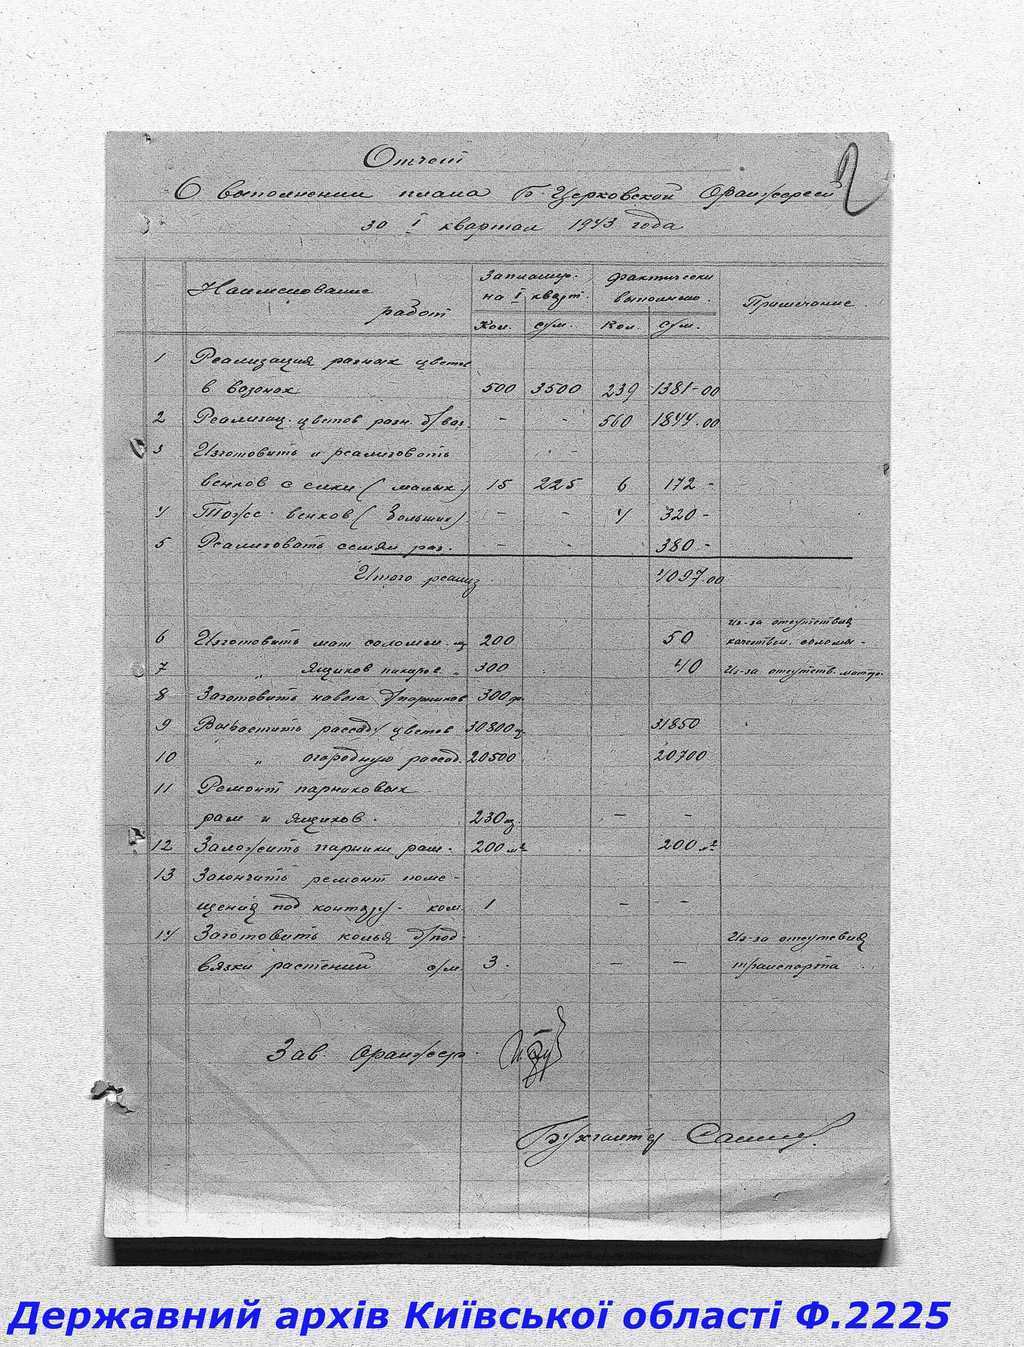 2
Отчет
О выполнении плана Б-Церковской Оранжереей
за I квартал 1943 года
Наименование работ
Запланир. на I кварт.
фактически выполнено.
Примечание
Кол. сум. Кол. сум.
1 Реализация разных цветов
в вазонах 500 3500 239 1381-00
2 Реализац. цветов разн. б/ваз. - - 560 1844.00
3 Изготовить и реализовать
венков с елки (малых) 15 225 6 172 -
4 Тоже венков (больших) - - 4 320 -
5 Реализовать семян раз. - - 380 -
Итого реализ 4097.00
6 Изготовить мат соломен. 200 50 Из-за отсутствия
качествен. соломы -
7 " Ящиков пикиров. " 300 40 Из-за отсутств. матер.
8 Заготовить навоза д/парников 300
9 Вырастить рассаду цветов 30800 31850
10 " огородную рассад. 20500 20700
11 Ремонт парниковых
рам и ящиков. 230 - -
12 Заложить парники рам. 200 м² 200 м²
13 Закончить ремонт поме-
щения под контору - ком. 1 - -
14 Заготовить колья д/под- Из-за отсутствия
вязки растений 3. - - транспорта
Зав. Оранжер.
Бухгалтер
Державний архів Київської області Ф.2225